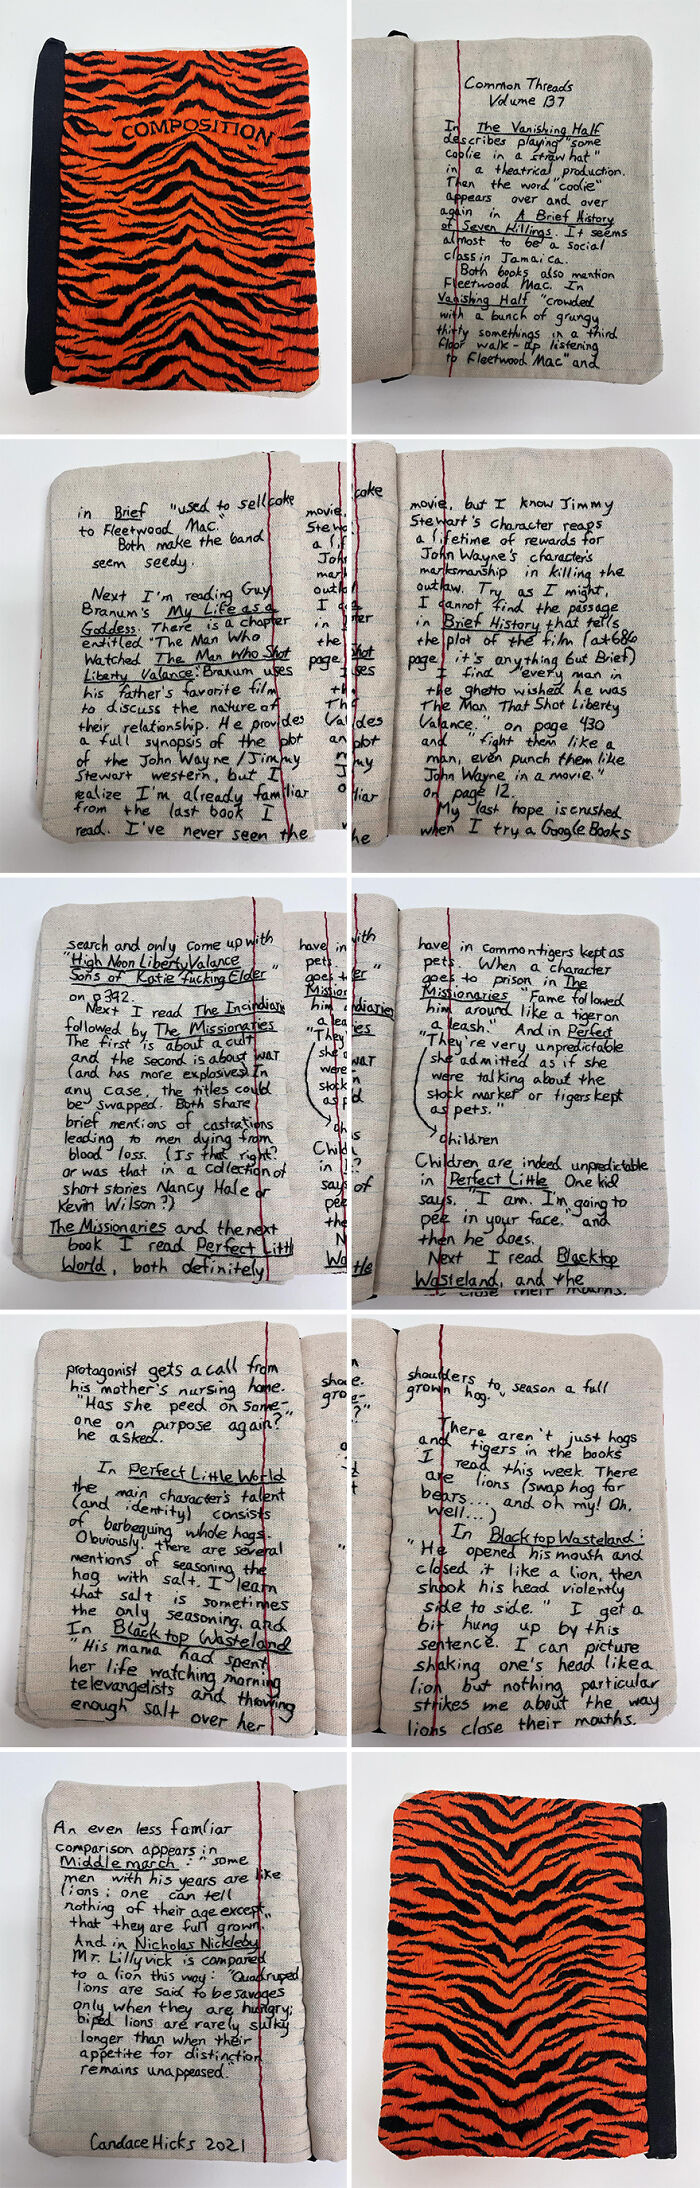 COMPOSITION
Common Threads
Volume 137
In The Vanishing Half
describes playing "some
coolie in a straw hat"
in a theatrical production.
Then the word "coolie"
appears over and over
again in A Brief History
of Seven Killings. It seems
almost to be a social
class in Jamaica.
Both books also mention
Fleetwood Mac. In
Vanishing Half "crowded
with a bunch of grungy
thirty somethings in a third
floor walk-up listening
to Fleetwood Mac" and
in Brief "used to sell coke
to Fleetwood Mac."
Both make the band
seem seedy.
Next I'm reading Guy
Branum's My Life as a
Goddess. There is a chapter
entitled "The Man Who
Watched The Man Who Shot
Liberty Valance." Branum uses
his father's favorite film
to discuss the nature of
their relationship. He provides
a full synopsis of the plot
of the John Wayne/Jimmy
Stewart western, but I
realize I'm already familiar
from the last book I
read. I've never seen the
movie, but I know Jimmy
Stewart's character reaps
a lifetime of rewards for
John Wayne's character's
marksmanship in killing the
outlaw. Try as I might,
I cannot find the passage
in Brief History that tells
the plot of the film (at 686
page it's anything but Brief)
I find "every man in
the ghetto wished he was
The Man That Shot Liberty
Valance." on page 430
and "fight them like a
man, even punch them like
John Wayne in a movie."
on page 12.
My last hope is crushed
when I try a Google Books
search and only come up with
"High Noon Liberty Valance
Sons of Katie fucking Elder"
on p392.
Next I read The Incindiaries
followed by The Missionaries
The first is about a cult
and the second is about war
(and has more explosives) In
any case, the titles could
be swapped. Both share
brief mentions of castrations
leading to men dying from
blood loss. (Is that right?
or was that in a collection of
short stories Nancy Hale or
Kevin Wilson?)
The Missionaries and the next
book I read Perfect Little
World, both definitely
have in common tigers kept as
pets. When a character
goes to prison in The
Missionaries "Fame followed
him around like a tiger on
a leash." And in Perfect
"They're very unpredictable
she admitted as if she
were talking about the
stock market or tigers kept
as pets."
children
Children are indeed unpredictable
in Perfect Little One kid
says, "I am. I'm going to
pee in your face." and
then he does.
Next I read Blacktop
Wasteland, and the
protagonist gets a call from
his mother's nursing home.
"Has she peed on some-
one on purpose again?"
he asked.
In Perfect Little World
the main character's talent
(and identity) consists
of barbequing whole hogs.
Obviously, there are several
mentions of seasoning the
hog with salt. I learn
that salt is sometimes
the only seasoning, and
In Blacktop Wasteland
"His mama had spent
her life watching morning
televangelists and throwing
enough salt over her
shoulders to season a full
grown hog."
There aren't just hogs
and tigers in the books
I read this week. There
are lions (swap hog for
bears... and oh my! Oh,
well...)
In Blacktop Wasteland:
"He opened his mouth and
closed it like a lion, then
shook his head violently
side to side." I get a
bit hung up by this
sentence. I can picture
shaking one's head like a
lion but nothing particular
strikes me about the way
lions close their mouths.
An even less familiar
comparison appears in
Middlemarch: "some
men with his years are like
lions; one can tell
nothing of their age except
that they are full grown."
And in Nicholas Nickleby
Mr. Lillyvick is compared
to a lion this way: "Quadruped
lions are said to be savages
only when they are hungry;
biped lions are rarely sulky
longer than when their
appetite for distinction
remains unappeased."
Candace Hicks 2021